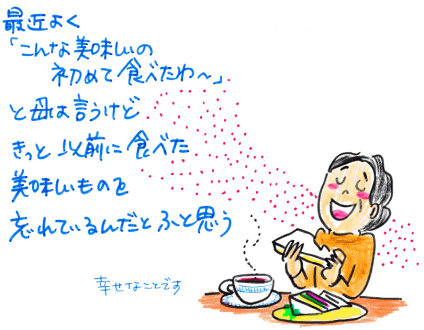 最近よく
「こんな美味しいの
初めて食べたわ〜」
と母は言うけど
きっと以前に食べた
美味しいものを
忘れているんだとふと思う
幸せなことです